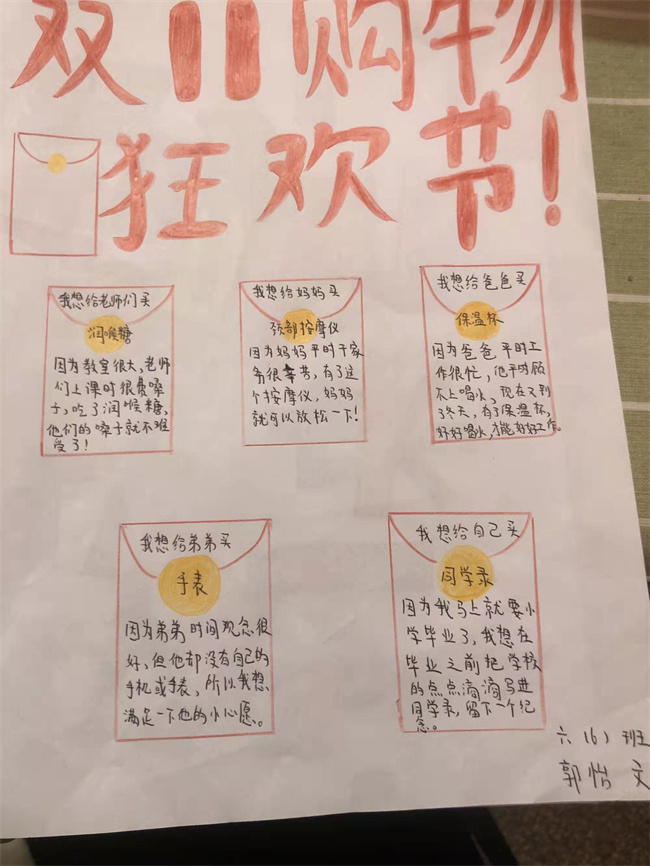 双11购物
狂欢节!
我想给老师们买
润喉糖
因为教室很大,老师
们上课时很费嗓
子,吃了润喉糖,
他们的嗓子就不难
受了!
我想给妈妈买
颈部按摩仪
因为妈妈平时干家
务很辛苦,有了这
个按摩仪,妈妈
就可以放松一下!
我想给爸爸买
保温杯
因为爸爸平时工
作很忙,他平时顾
不上喝水,现在又到
了冬天,有了保温杯,
好好喝水,才能好好工作。
我想给弟弟买
手表
因为弟弟时间观念很
好,但他却没有自己的
手机或手表,所以我想
满足一下他的小心愿。
我想给自己买
同学录
因为我马上就要小
学毕业了,我想在
毕业之前把学校
的点点滴滴写进
同学录,留下一个纪
念。
六(6)班
郭怡文